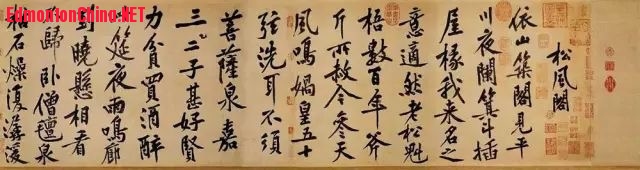 EdmontonChina.NET
松風閣
依山築閣見平
川夜闌箕斗插
屋椽我来名之
意適然老松魁
梧數百年斧
斤所赦今參天
風鳴媧皇五十
弦洗耳不須
菩薩泉嘉
三二子甚好賢
力貧買酒醉
此筵夜雨鳴廊
到曉懸相看
不歸卧僧氊泉
枯石燥復潺湲